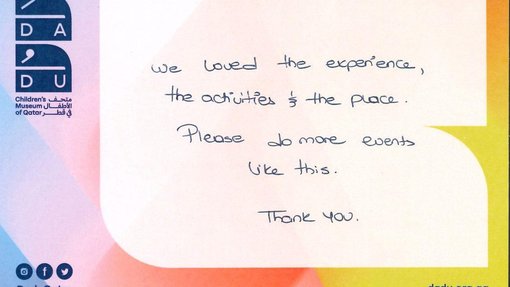 DA
DU
Children's
Museum
of Qatar
متحف
الأطفال
في قطر
we loved the experience,
the activities & the place.
Please do more events
like this.
Thank you.